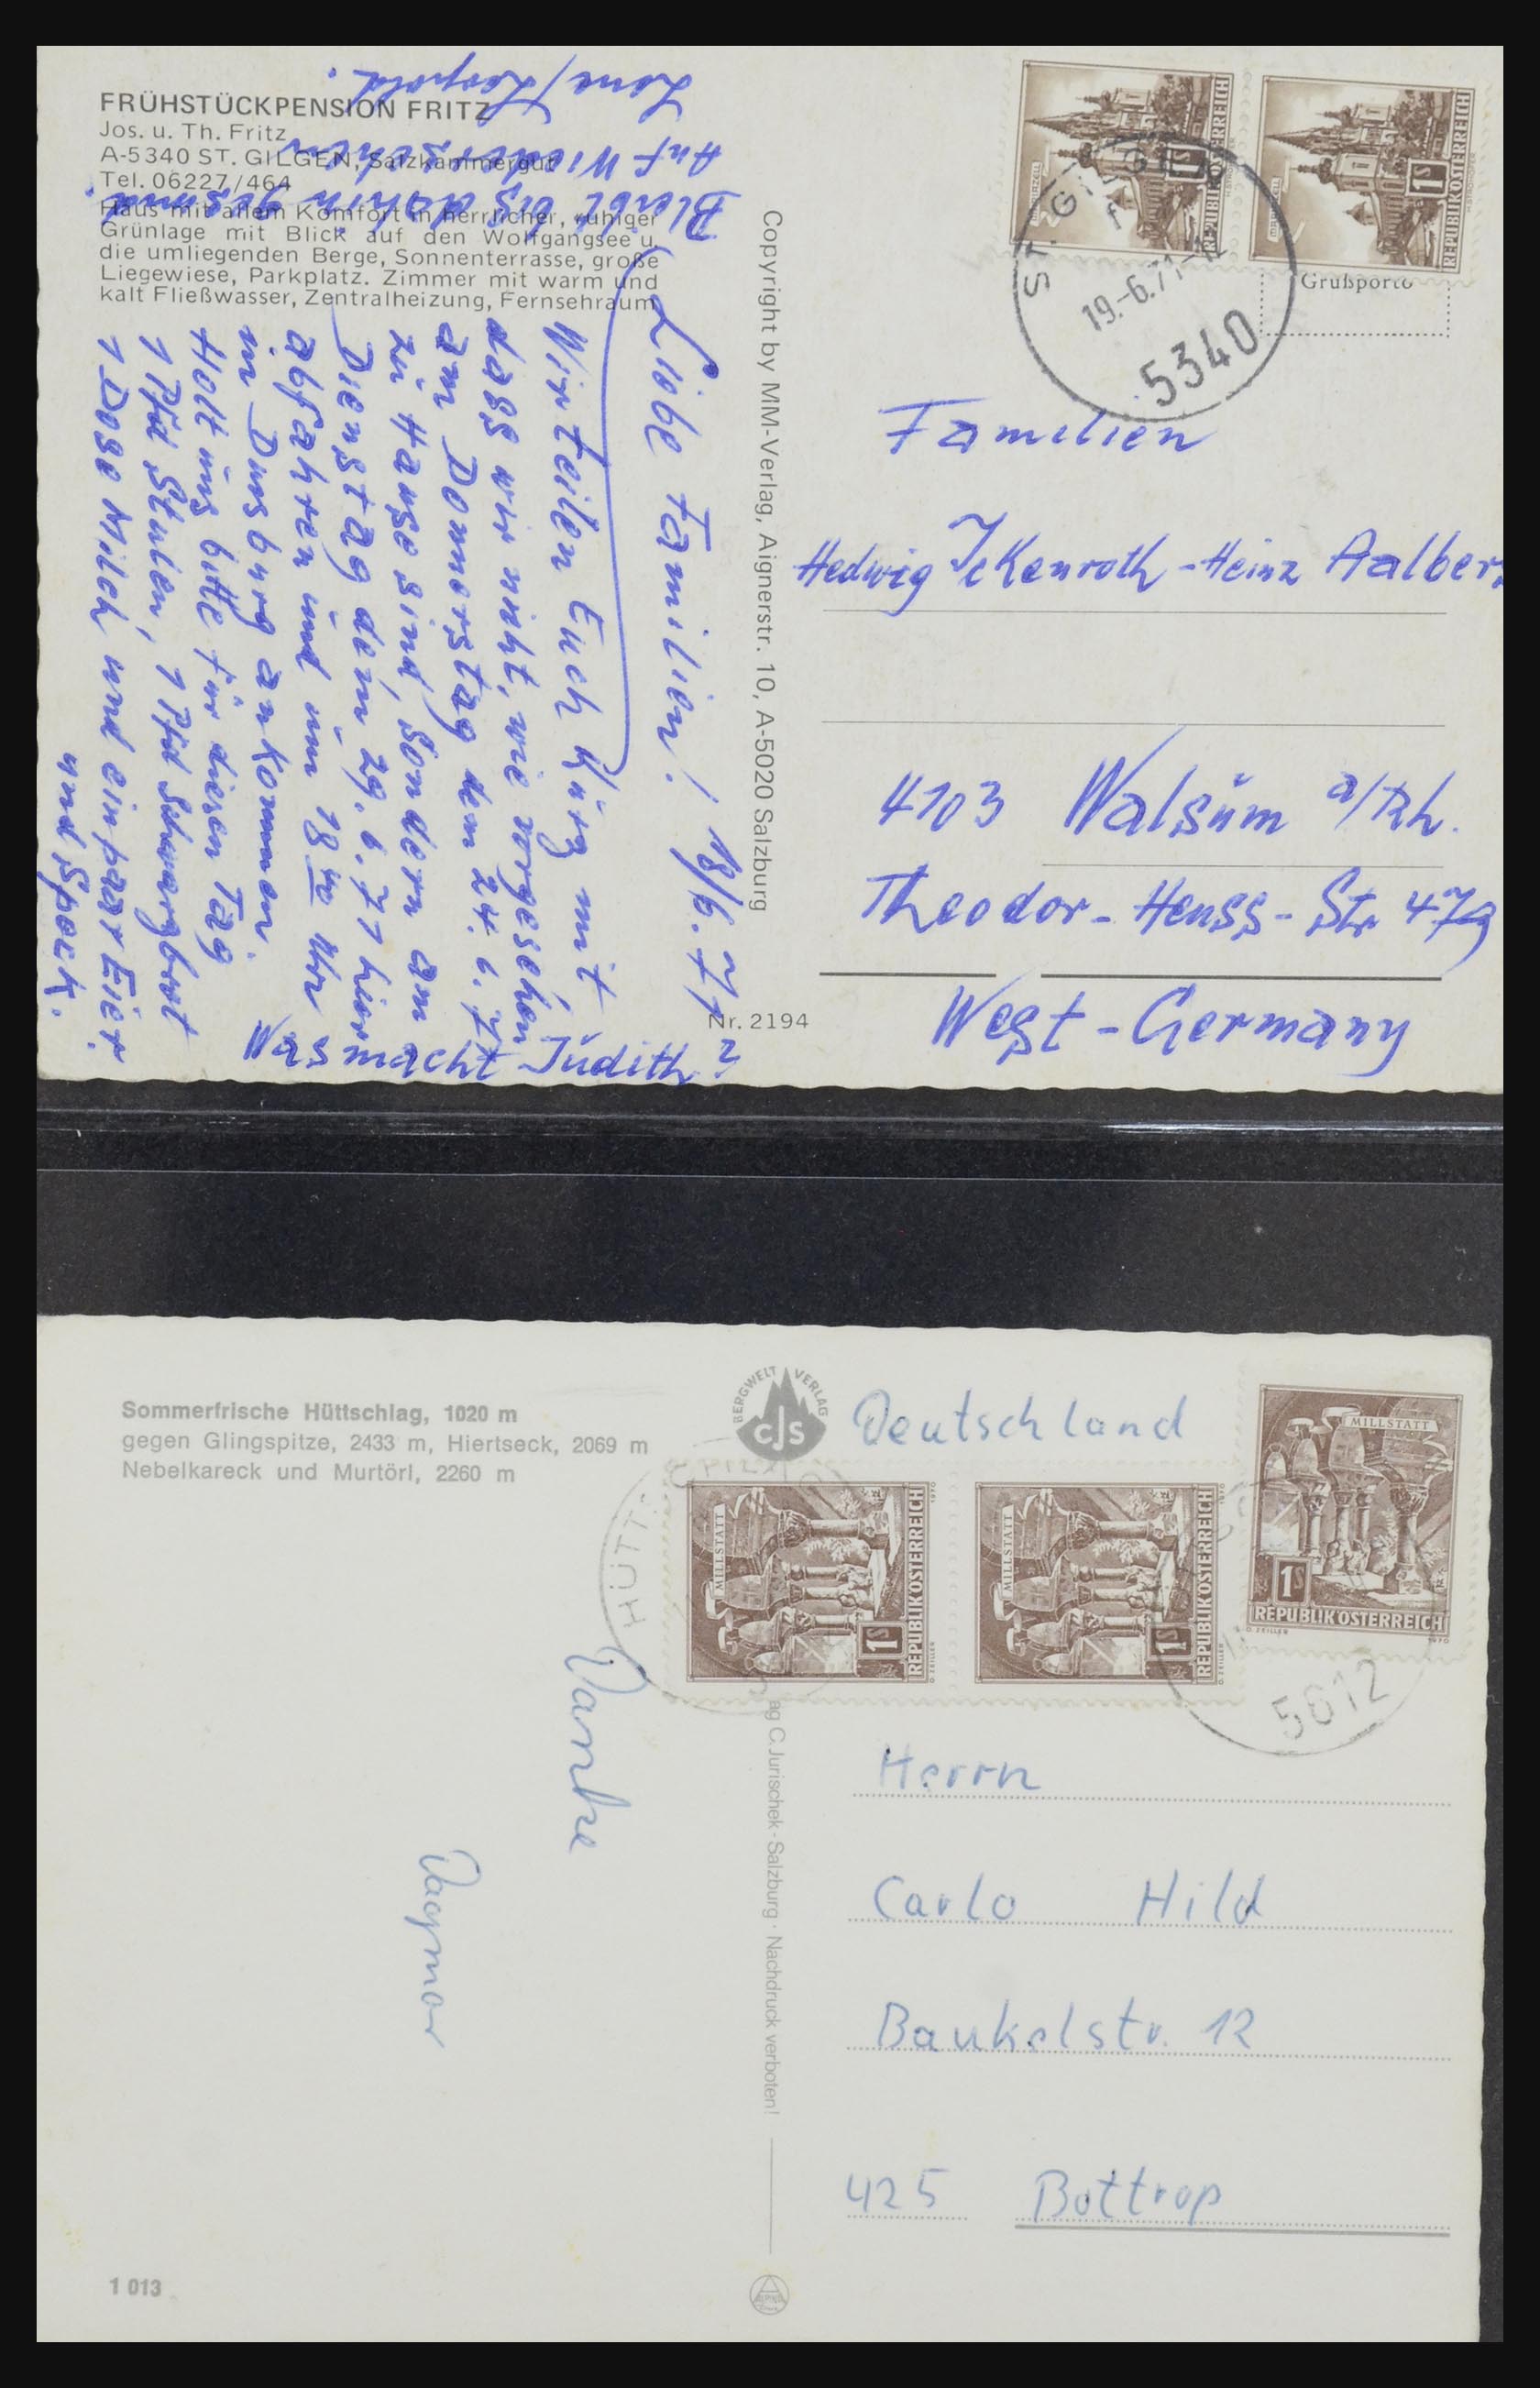 FRÜHSTÜCKPENSION FRITZ
Jos. u. Th. Fritz
A-5340 ST. GILGEN, Salzkammergut
Tel. 06227/464
Haus mit allem Komfort in herrlicher, ruhiger
Grünlage mit Blick auf den Wolfgangsee u.
die umliegenden Berge, Sonnenterrasse, große
Liegewiese, Parkplatz. Zimmer mit warm und
kalt Fließwasser, Zentralheizung, Fernsehraum
18/6.71
Liebe Familien!
Wir teilen Euch kurz mit
dass wir nicht, wie vorgesehen
am Donnerstag dem 24. 6. 71
zu Hause sind, sondern am
Dienstag dem 29. 6. 71 hier
abfahren und um 18 Uhr
in Duisburg ankommen.
Holt uns bitte für diesen Tag
1 Pfd Stuten, 1 Pfd Schwarzbrot
1 Dose Milch und ein paar Eier
und Speck.
Bleibt bis dahin gesund.
Auf Wiedersehen
Leopold.
Was macht Judith?
Copyright by MM-Verlag, Aignerstr. 10, A-5020 Salzburg
Nr. 2194
MARIAZELL
1S
REPUBLIK ÖSTERREICH
MARIAZELL
1S
REPUBLIK ÖSTERREICH
Grußporto
ST. GILGEN
19.-6.71
5340
Familien
Hedwig Ickenroth - Heinz Aalbers
4103 Walsum a/Rh.
Theodor-Heuss-Str 479
West-Germany
Sommerfrische Hüttschlag, 1020 m
gegen Glingspitze, 2433 m, Hiertseck, 2069 m
Nebelkareck und Murtörl, 2260 m
BERGWELT VERLAG
CJS
Deutschland
MILLSTATT
1S
REPUBLIK ÖSTERREICH
MILLSTATT
1S
REPUBLIK ÖSTERREICH
MILLSTATT
1S
REPUBLIK ÖSTERREICH
HÜTTSCHLAG
5612
Danke
Dagmar
ag C. Jurischek · Salzburg · Nachdruck verboten!
Herrn
Carlo Hild
Baukelstr. 12
425 Bottrop
1 013